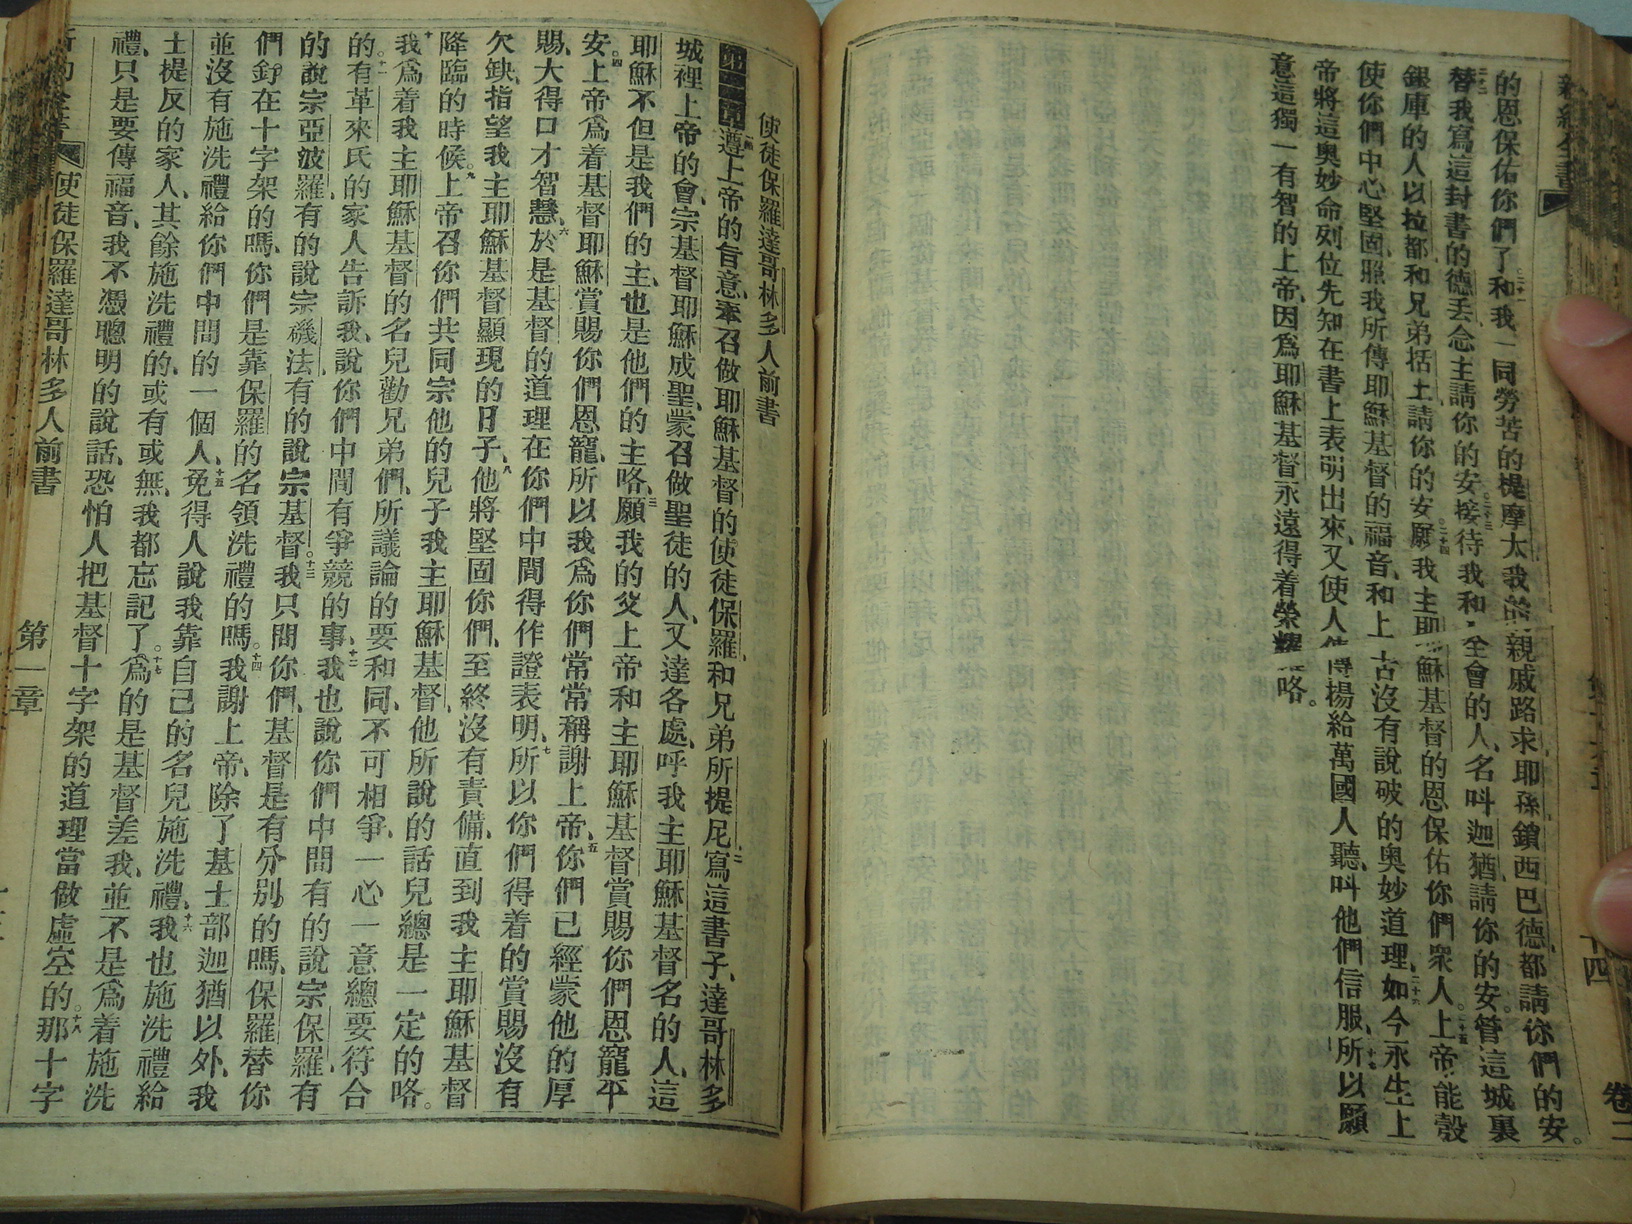 的恩保佑你們了和我一同勞苦的提摩太我的親戚路求耶孫鎖西巴德都請你們的安。
替我寫這封書的德丢念主請你的安接待我和全會的人、名呌迦猶請你的安。管這城裏
銀庫的人以拉都和兄弟括土請你的安願我主耶穌基督的恩保佑你們衆人。上帝能彀
使你們中心堅固、照我所傳耶穌基督的福音、和上古沒有說破的奧妙道理、如今永生上
帝將這奧妙命列位先知在書上表明出來、又使人傳揚給萬國人聽、呌他們信服、所以願
意這獨一有智的上帝、因爲耶穌基督永遠得着榮耀咯。
十四
使徒保羅達哥林多人前書
遵上帝的旨意、奉召做耶穌基督的使徒保羅、和兄弟所提尼寫這書子、達哥林多
城裡上帝的會、宗基督耶穌成聖、蒙召做聖徒的人、又達各處、呼我主耶穌基督名的人、這
耶穌不但是我們的主、也是他們的主咯、三願我的父上帝和主耶穌基督賞賜你們恩寵平
安。四上帝爲着基督耶穌賞賜你們恩寵、所以我爲你們常常稱謝上帝、五你們已經蒙他的厚
賜、大得口才智慧、六於是基督的道理在你們中間得作證表明、七所以你們得着的賞賜沒有
欠缺、指望我主耶穌基督顯現的日子、八他將堅固你們、至終沒有責備、直到我主耶穌基督
降臨的時候。九上帝召你們共同宗他的兒子我主耶穌基督、他所說的話兒總是一定的咯。
十我爲着我主耶穌基督的名兒勸兄弟們、所議論的要和同、不可相爭、一心一意總要符合
的。十一有革來氏的家人告訴我、說你們中間有爭競的事、十二我也說你們中間有的說宗保羅、有
的說宗亞波羅、有的說宗磯法、有的說宗基督。十三我只問你們、基督是有分别的嗎、保羅替你
們釘在十字架的嗎、你們是靠保羅的名領洗禮的嗎。十四我謝上帝、除了基士部迦猶以外、我
並沒有施洗禮給你們中間的一個人、十五免得人說我靠自己的名兒施洗禮、十六我也施洗禮給
士提反的家人、其餘施洗禮的、或有或無、我都忘記了。十七爲的是基督差我、並不是爲着施洗
禮、只是要傳福音、我不憑聰明的說話、恐怕人把基督十字架的道理當做虛空的。十八那十字
使徒保羅達哥林多人前書 第一章